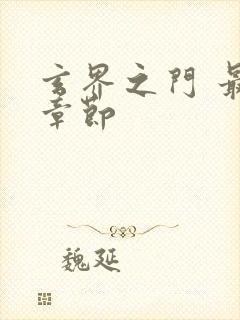 玄界之門 最
章節
魏延